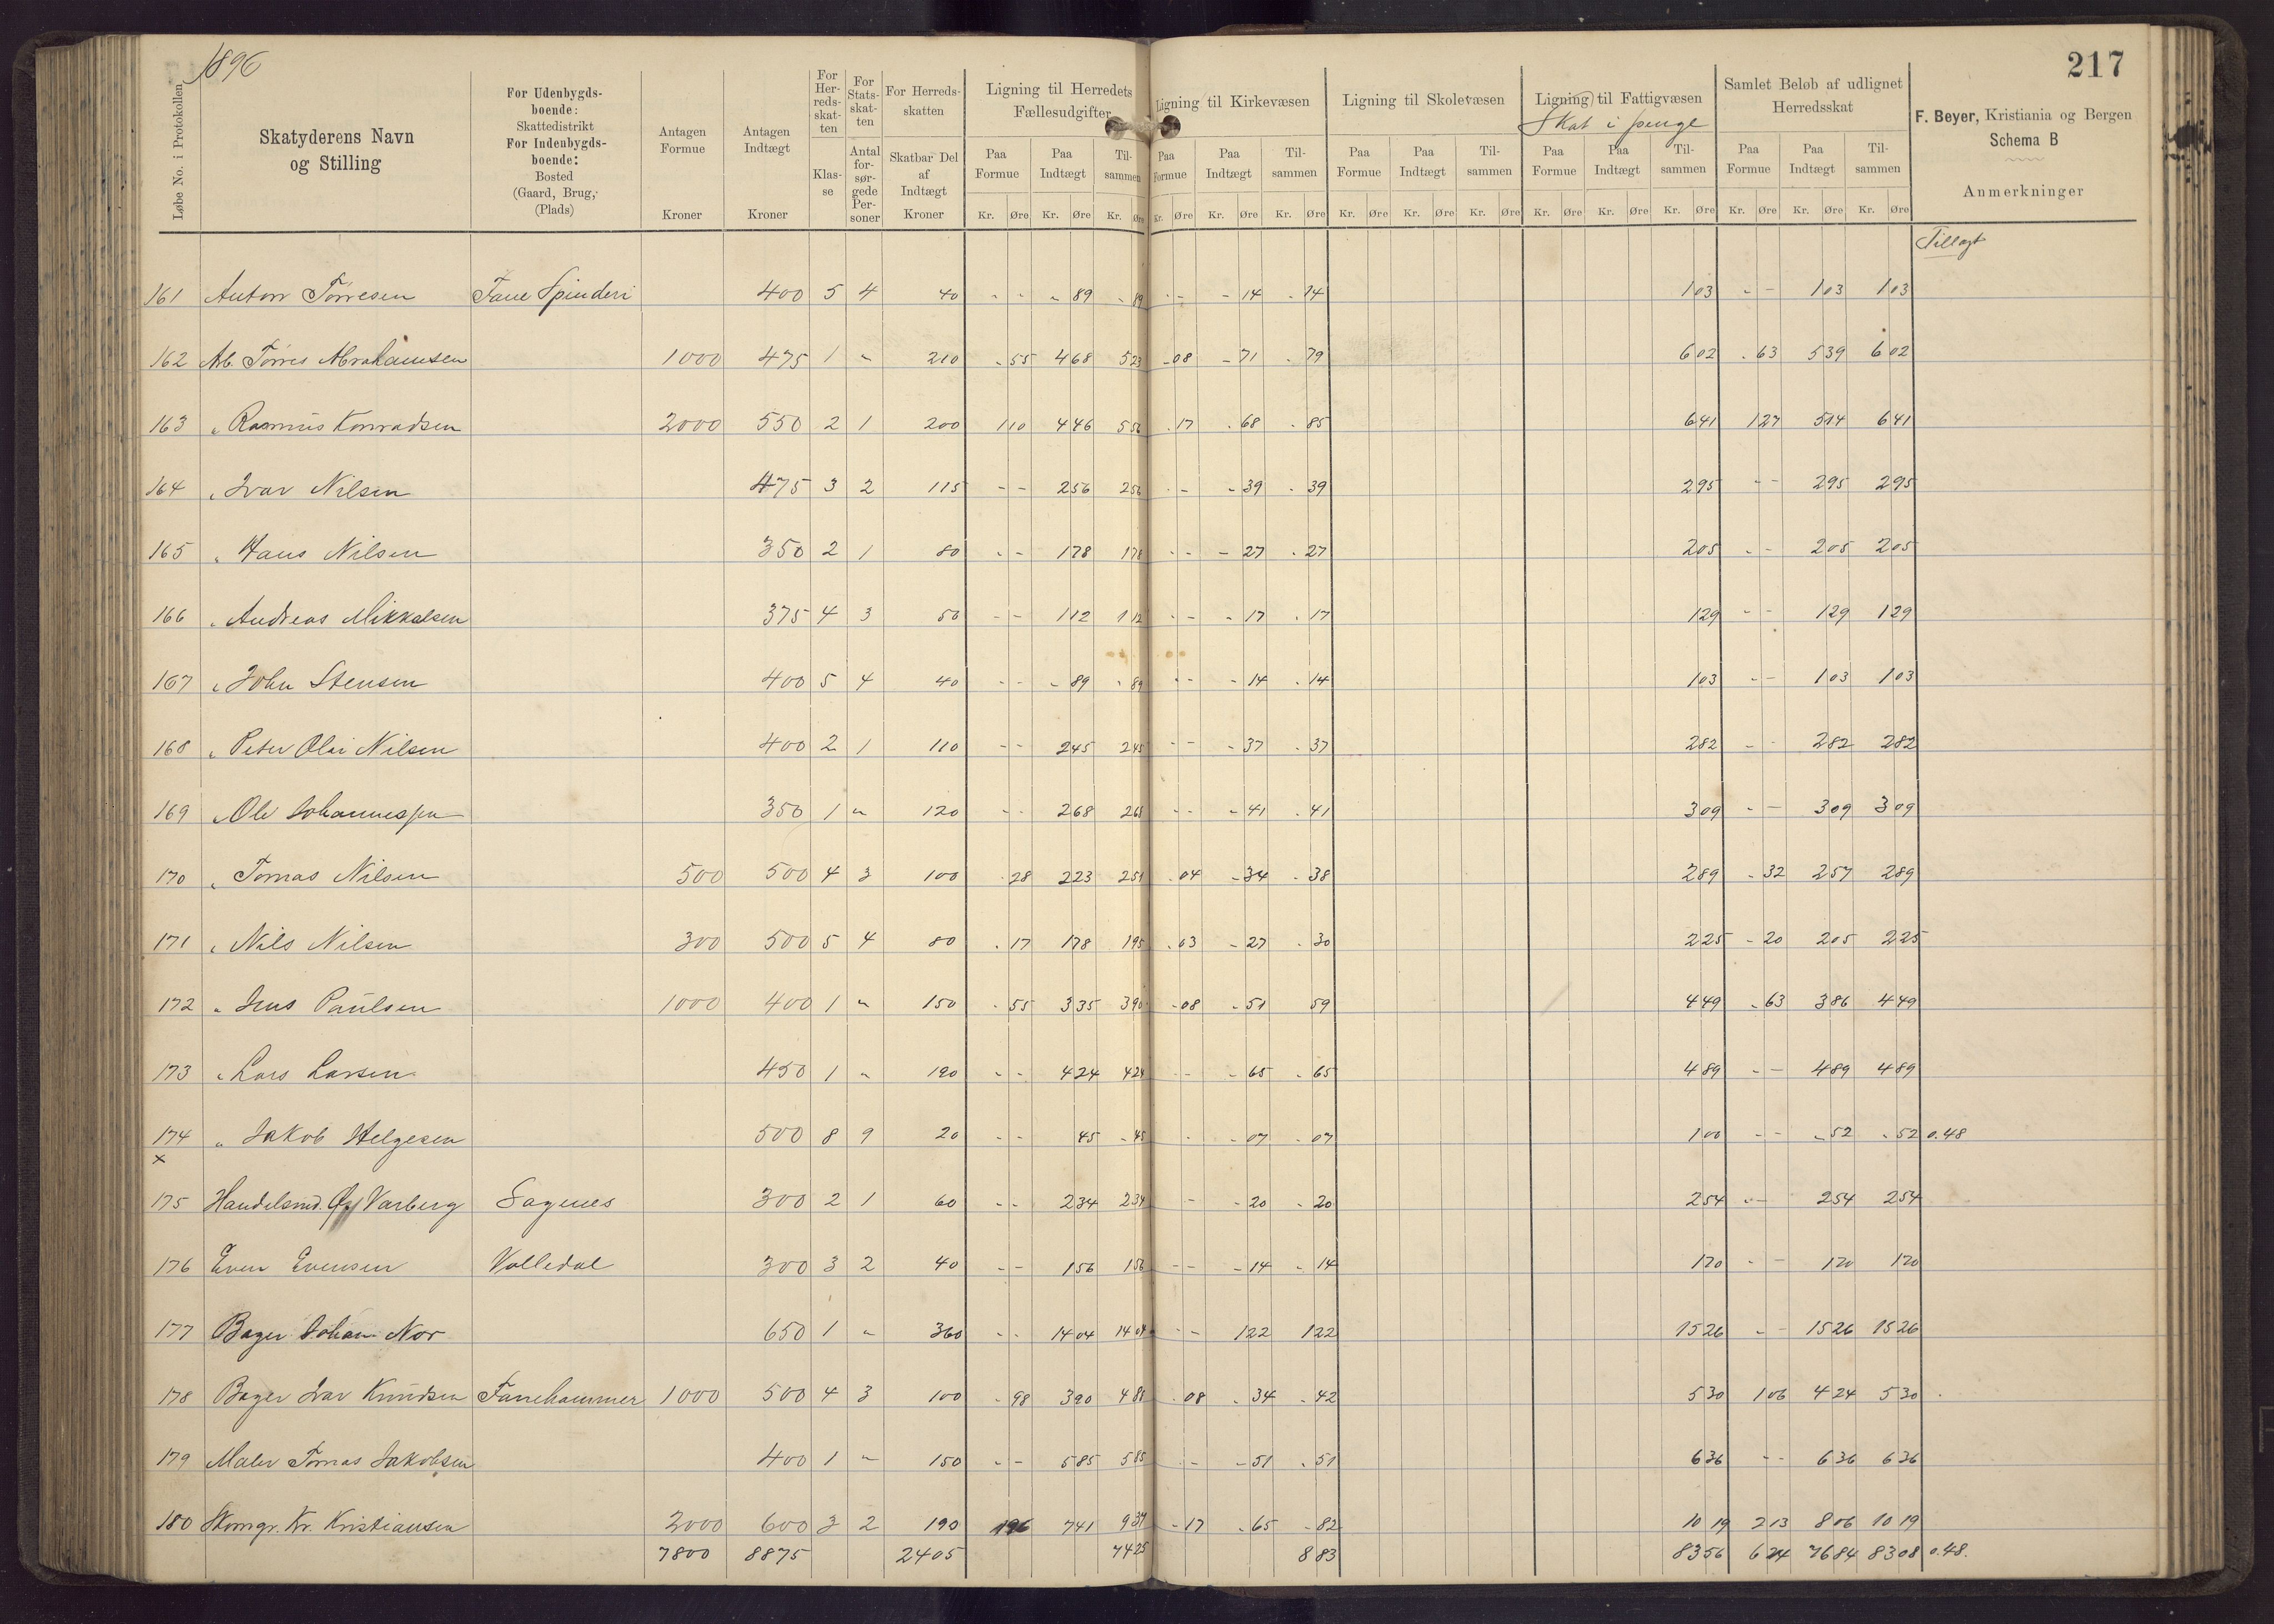 1896
217
Løbe No. i Protokollen
Skatyderens Navn og Stilling
For Udenbygds-boende: Skattedistrikt For Indenbygds-boende: Bosted (Gaard, Brug, Plads)
Antagen Formue Kroner
Antagen Indtægt Kroner
For Her-reds-skat-ten Klas-se
For Stats-skat-ten Antal for-sør-gede Per-soner
For Herreds-skatten Skatbar Del af Indtægt Kroner
Ligning til Herredets Fællesudgifter
Ligning til Kirkevæsen
Ligning til Skolevæsen
Ligning til Fattigvæsen
Skat i penge
Samlet Beløb af udlignet Herredsskat
Paa Formue Paa Indtægt Til-sammen Paa Formue Paa Indtægt Til-sammen Paa Formue Paa Indtægt Til-sammen Paa Formue Paa Indtægt Til-sammen Paa Formue Paa Indtægt Til-sammen
Kr. Øre Kr. Øre Kr. Øre Kr. Øre Kr. Øre Kr. Øre Kr. Øre Kr. Øre Kr. Øre Kr. Øre Kr. Øre Kr. Øre Kr. Øre Kr. Øre Kr. Øre
F. Beyer, Kristiania og Bergen
Schema B
Anmerkninger
Tillagt
161 Anton Torresen Fane Spinderi 400 5 4 40 - - - 89 - 89 - - - 14 - 14 103 - - 103 103
162 Arb. Torres Abrahamsen 1000 475 1 " 210 - 55 468 523 - 08 - 71 - 79 602 - 63 539 602
163 " Rasmus Konradsen 2000 550 2 1 200 110 446 556 - 17 - 68 - 85 641 127 514 641
164 " Ivar Nilsen 475 3 2 115 - - 256 256 - - - 39 - 39 295 - - 295 295
165 " Hans Nilsen 350 2 1 80 - - 178 178 - - - 27 - 27 205 - - 205 205
166 " Andreas Mikkelsen 375 4 3 50 - - 112 112 - - - 17 - 17 129 - - 129 129
167 " John Stensen 400 5 4 40 - - - 89 - 89 - - - 14 - 14 103 - - 103 103
168 " Peter Olai Nilsen 400 2 1 110 - - 245 245 - - - 37 - 37 282 - - 282 282
169 " Ole Johannessen 350 1 " 120 - - 268 268 - - - 41 - 41 309 - - 309 309
170 " Tomas Nilsen 500 500 4 3 100 - 28 223 251 - 04 - 34 - 38 289 - 32 257 289
171 " Nils Nilsen 300 500 5 4 80 - 17 178 195 - 03 - 27 - 30 225 - 20 205 225
172 " Jens Paulsen 1000 400 1 " 150 - 55 335 390 - 08 - 51 59 449 - 63 386 449
173 " Lars Larsen 450 1 " 190 - - 424 424 - - - 65 - 65 489 - - 489 489
174 " Jakob Helgesen 500 8 9 20 - - 45 - 45 - - 07 - 07 100 - - - 52 - 52 0.48
x
175 Handelsmd. Varberg Sagenes 300 2 1 60 - - 234 234 - - 20 - 20 254 - - 254 254
176 Even Evensen Volledal 300 3 2 40 - - 156 156 - - - 14 - 14 170 - - 170 170
177 Bager Johan Nor 650 1 " 360 - - 1404 1404 - - 122 122 1526 - - 1526 1526
178 Bager Ivar Knudsen Fanehammer 1000 500 4 3 100 - 98 390 488 - 08 - 34 - 42 530 106 424 530
179 Maler Tomas Jakobsen 400 1 " 150 - - 585 585 - - - 51 - 51 636 - - 636 636
180 Skomgr. Kr. Kristiansen 2000 600 3 2 190 196 741 937 - 17 - 65 - 82 1019 213 806 1019
7800 8875 2405 7425 883 8356 624 7684 8308 0.48.